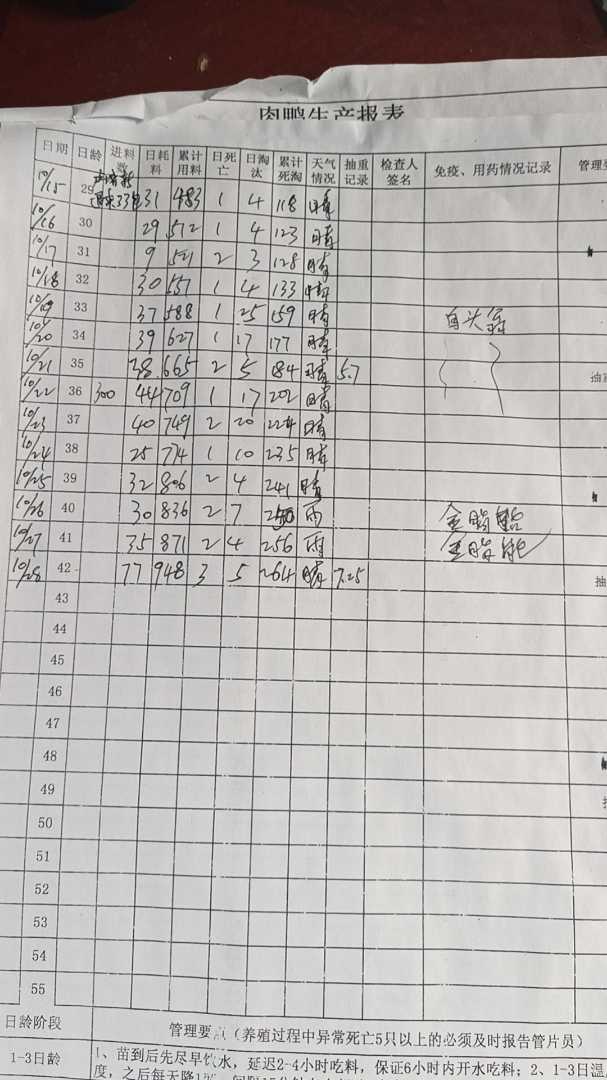 肉鸭生产报表
日期 日龄 进料数 日耗料 累计用料 日死亡 日淘汰 累计死淘 天气情况 抽重记录 检查人签名 免疫、用药情况记录 管理要
10/15 29 31 483 1 4 118 晴
10/16 30 29 512 1 4 123 晴
10/17 31 9 521 2 3 128 晴
10/18 32 30 551 1 4 133 晴
10/19 33 37 588 1 25 159 晴 白头翁
10/20 34 39 627 1 17 177 晴
10/21 35 38 665 2 5 184 晴 5.7
10/22 36 300 44 709 1 17 202 晴 抽
10/23 37 40 749 2 20 224 晴
10/24 38 25 774 1 10 235 晴
10/25 39 32 806 2 4 241 晴
10/26 40 30 836 2 7 250 雨
10/27 41 35 871 2 4 256 雨
10/28 42 77 948 3 5 264 晴 7.25 抽
43
44
45
46
47
48
49
50
51
52
53
54
55
日龄阶段 管理要点（养殖过程中异常死亡5只以上的必须及时报告管片员）
1-3日龄 1、苗到后先尽早饮水，延迟2-4小时吃料，保证6小时内开水吃料；2、1-3日温
度，之后每天降1